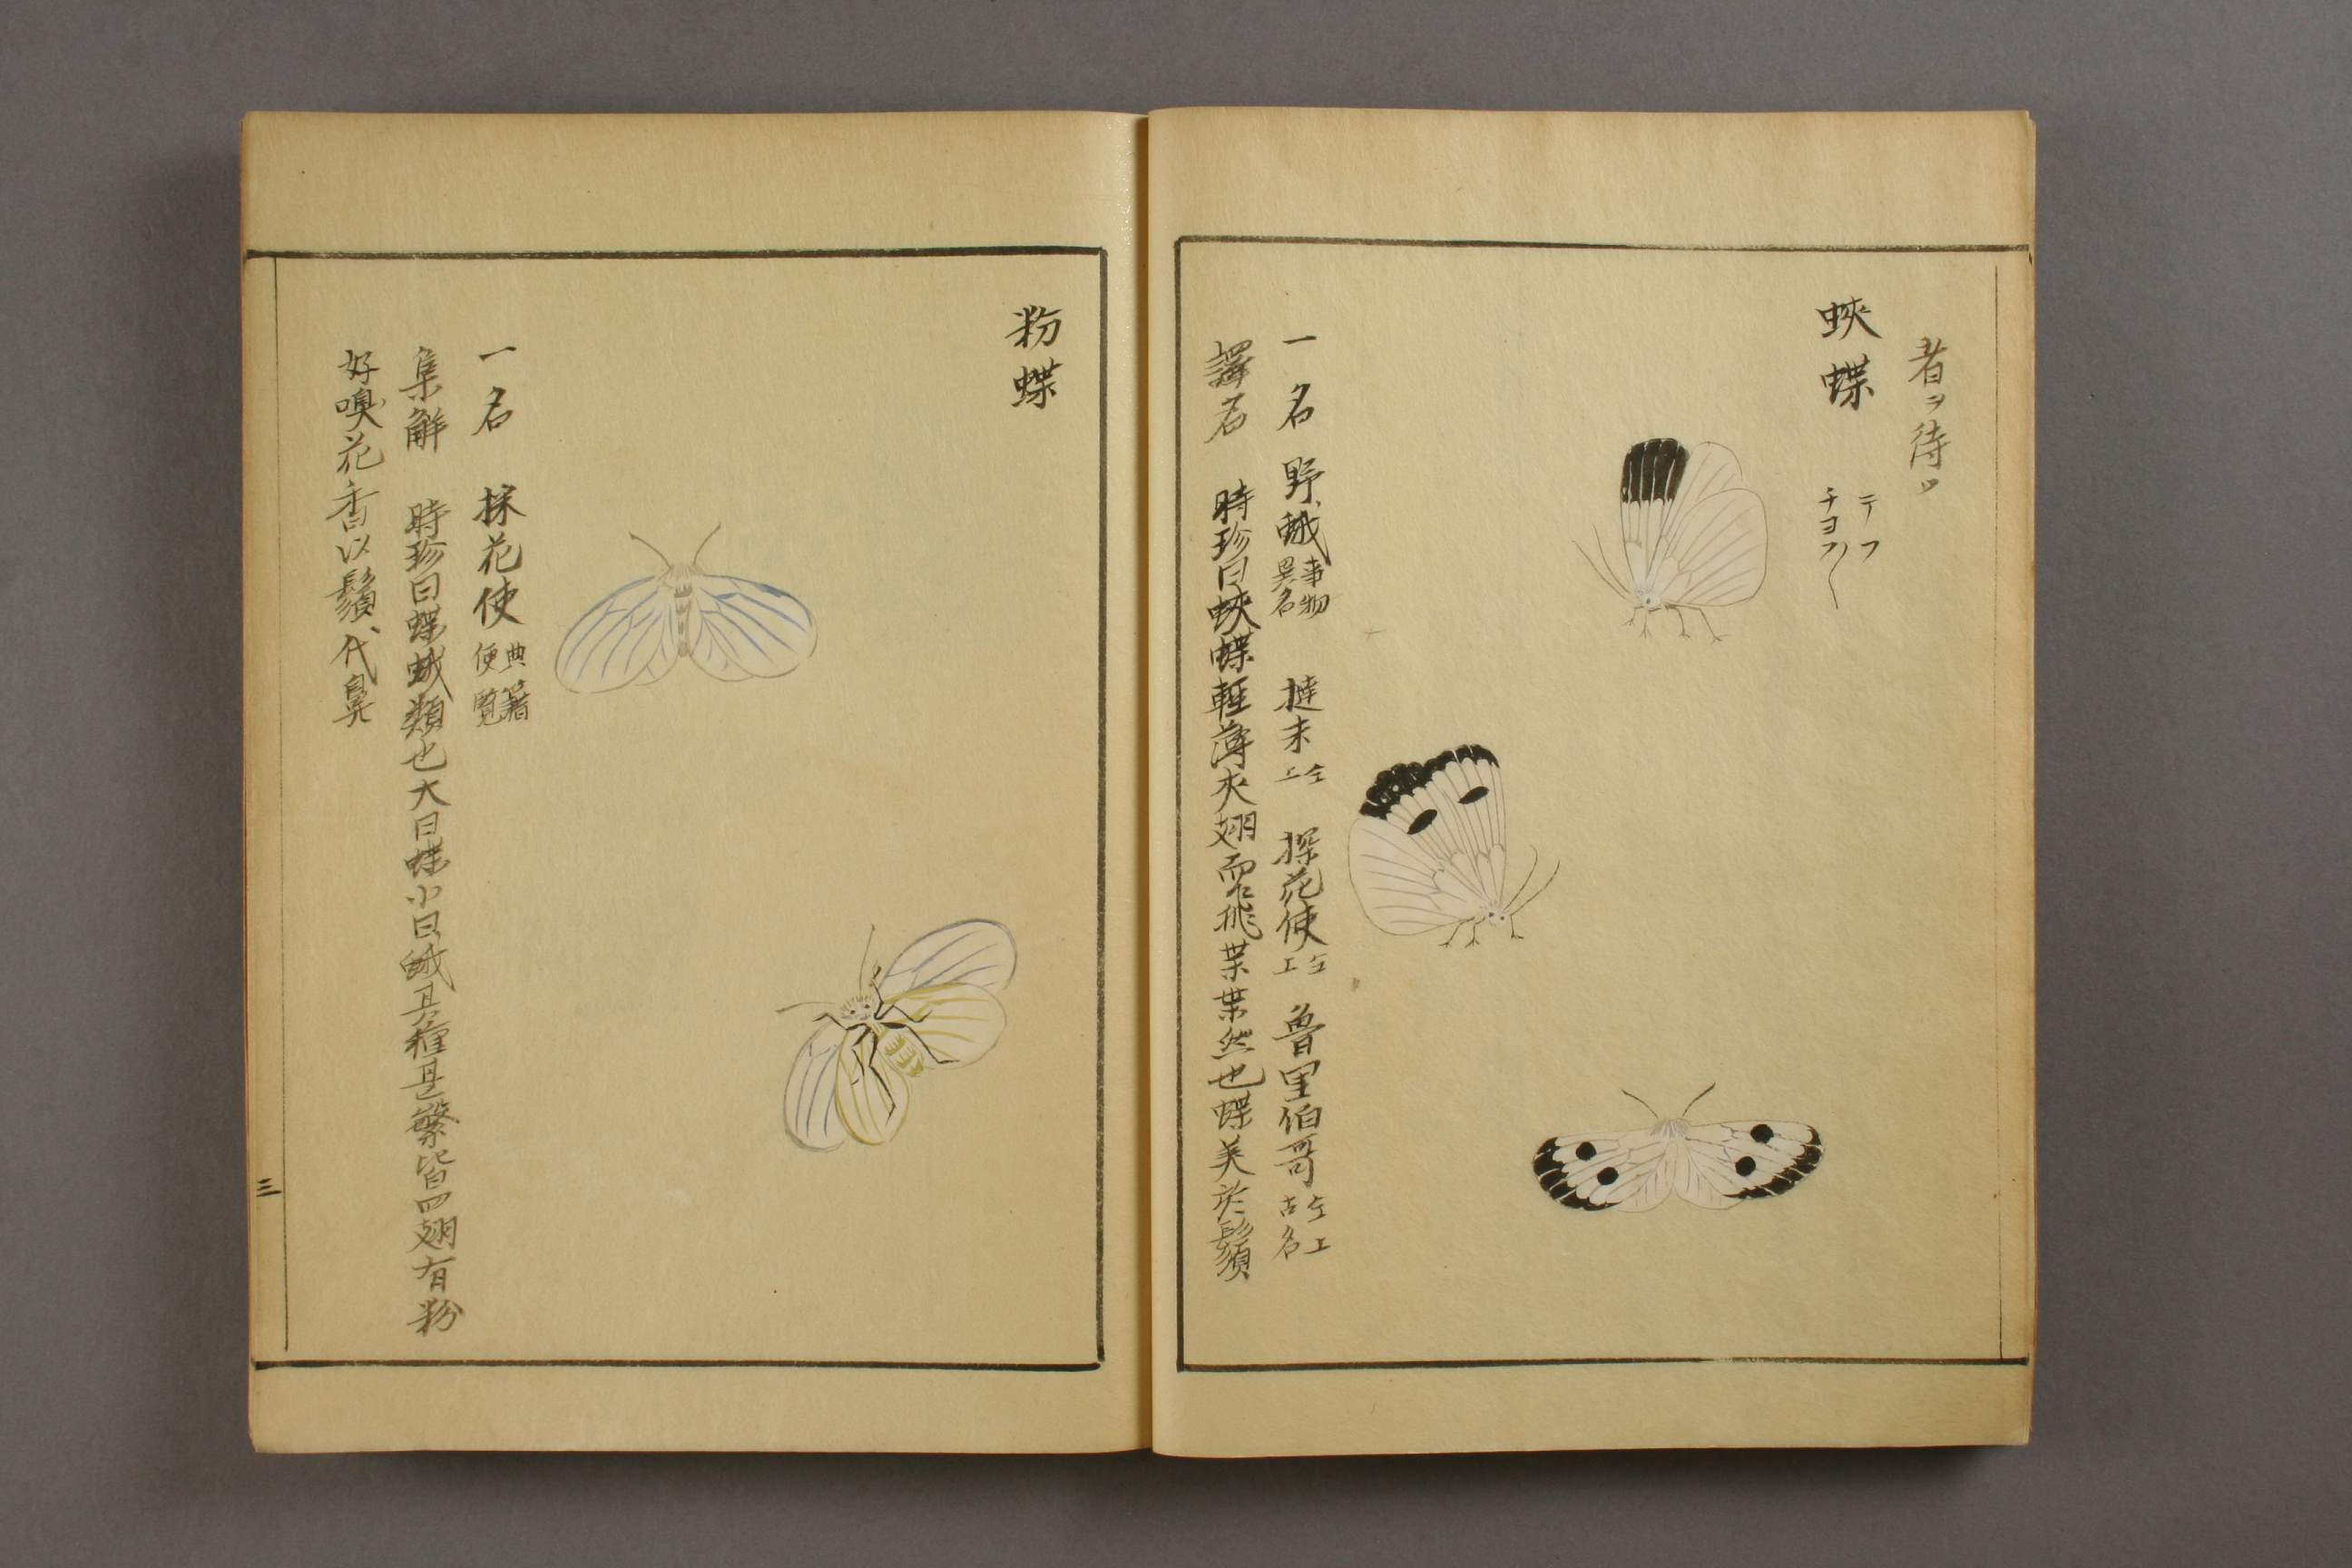 者ヲ待ツ
蛺蝶 テフ
チヨフ〱
一名 野蛾 事物
異名 撻末 仝上 探花使 仝上 魯里伯哥 仝上
古名
譯名 時珍曰蛺蝶輕薄夾翅而飛枼枼然也蝶美於鬚
粉蝶
一名 採花使 典籍
便覧
集解 時珍曰蝶蛾類也大曰蝶小曰蛾其種甚繁皆四翅有粉
好嗅花香以鬚代鼻
三